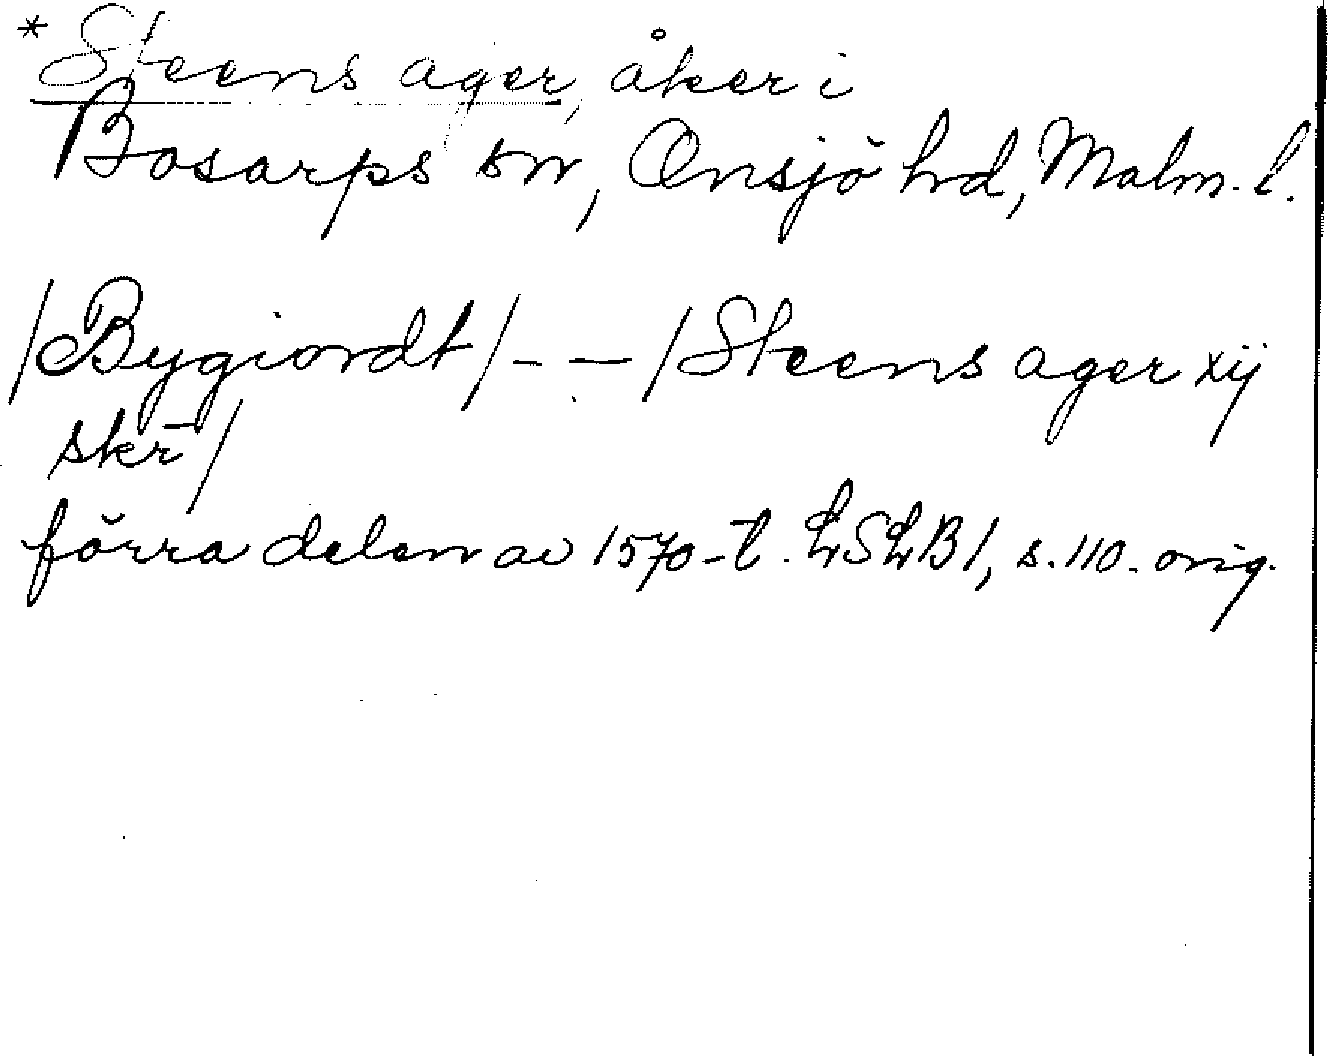 *Steens ager, åker i
Bosarps sn, Onsjö hrd, Malm. l.
/Bygiordt/ - — /Steens ager xij
skr̄/
förra delen av 1570-t. LSLB1, s. 110. orig.